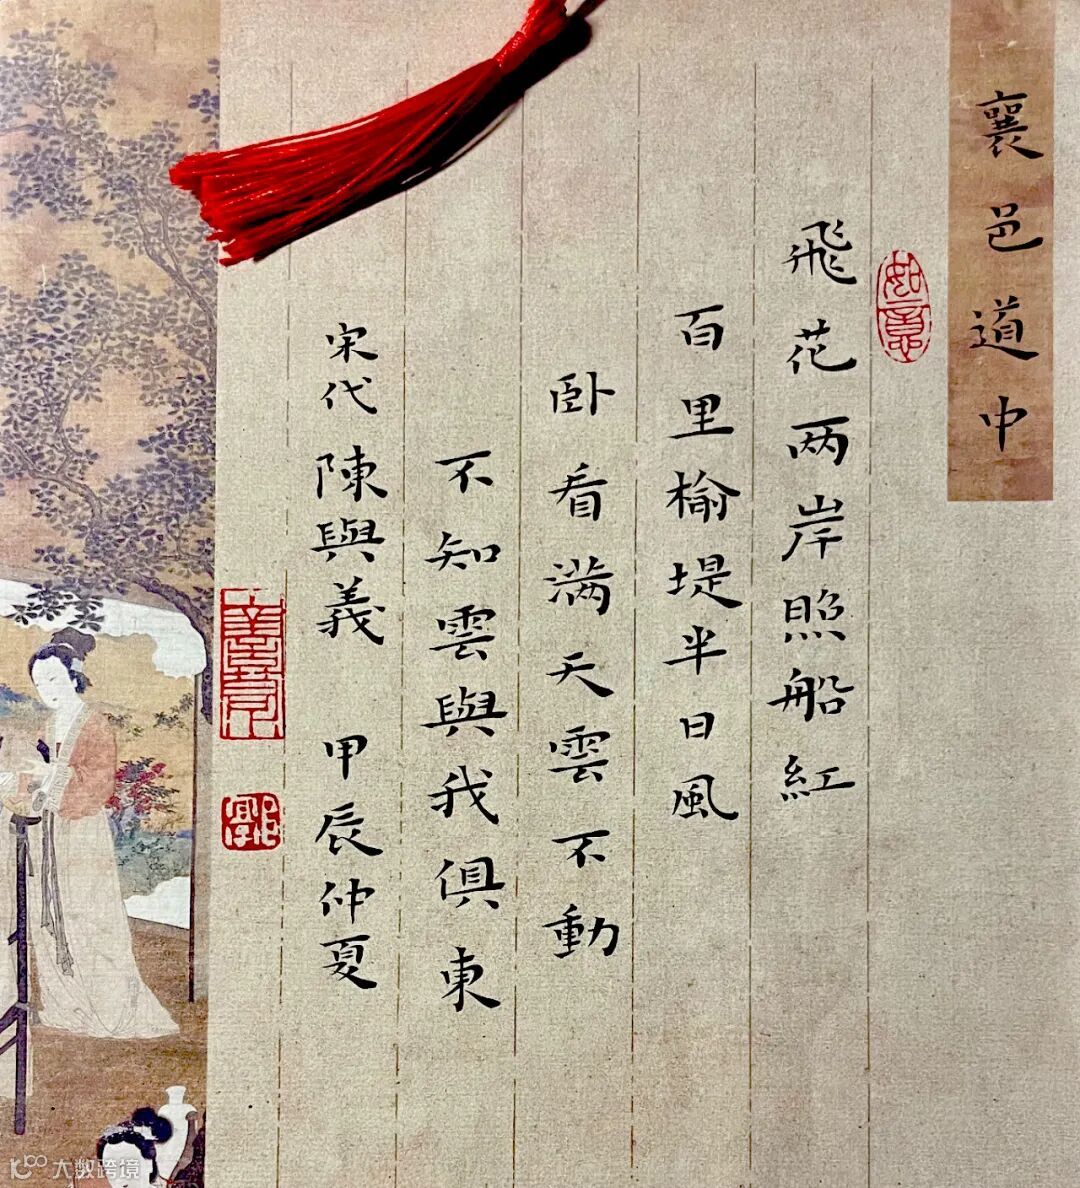 襄邑道中
飛花两岸照船紅
百里榆堤半日風
卧看满天雲不動
不知雲與我俱東
宋代 陳與義 甲辰仲夏
如意
大数跨境